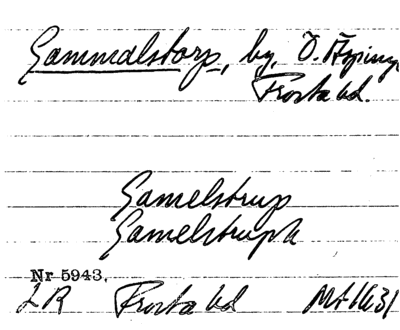 Gammalstorp, by, Ö. Äspinge
Frosta hd.
Gamelstrup
Gamelstruph
Nr 5943.
LR Frosta hd